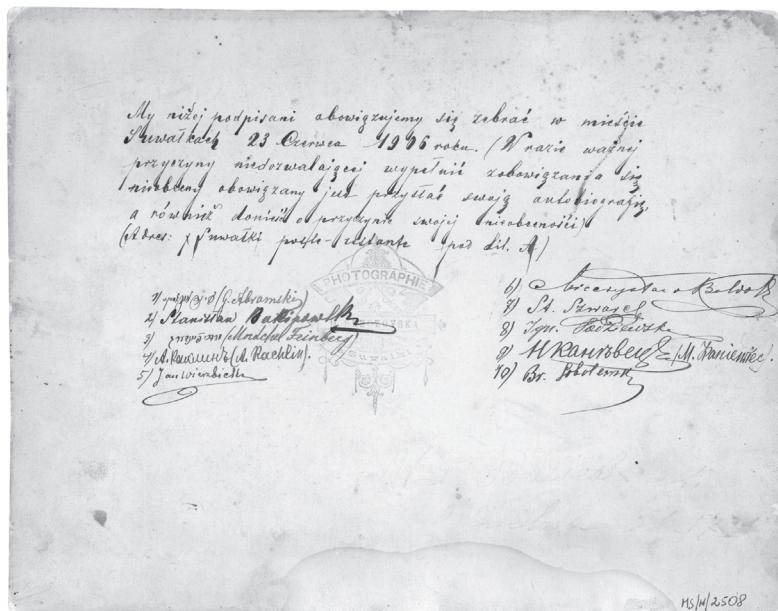 My niżej podpisani obowiązujemy się zebrać w mieście
Suwałkach 23 Czerwca 1906 roku. (W razie ważnej
przyczyny niedozwalającej wypełnić zobowiązania się
nieobecny obowiązany jest przysłać swoją autobiografię,
a również donieść o przyczynie swojej nieobecności)
(Adres: Suwałki poste-restante pod lit. A)
PHOTOGRAPHIE
1) (G. Abramski)
2) Stanisław
3) (Mordchel Feinberg)
4) А. Рахлинъ (A. Rachlin).
5) Jan Wierzbicki
6) Mieczysław
7) St. Szwajcer
8) Ign.
9) (M. Kaniewiec).
10) Br. Sobolewski
MS/H/2508